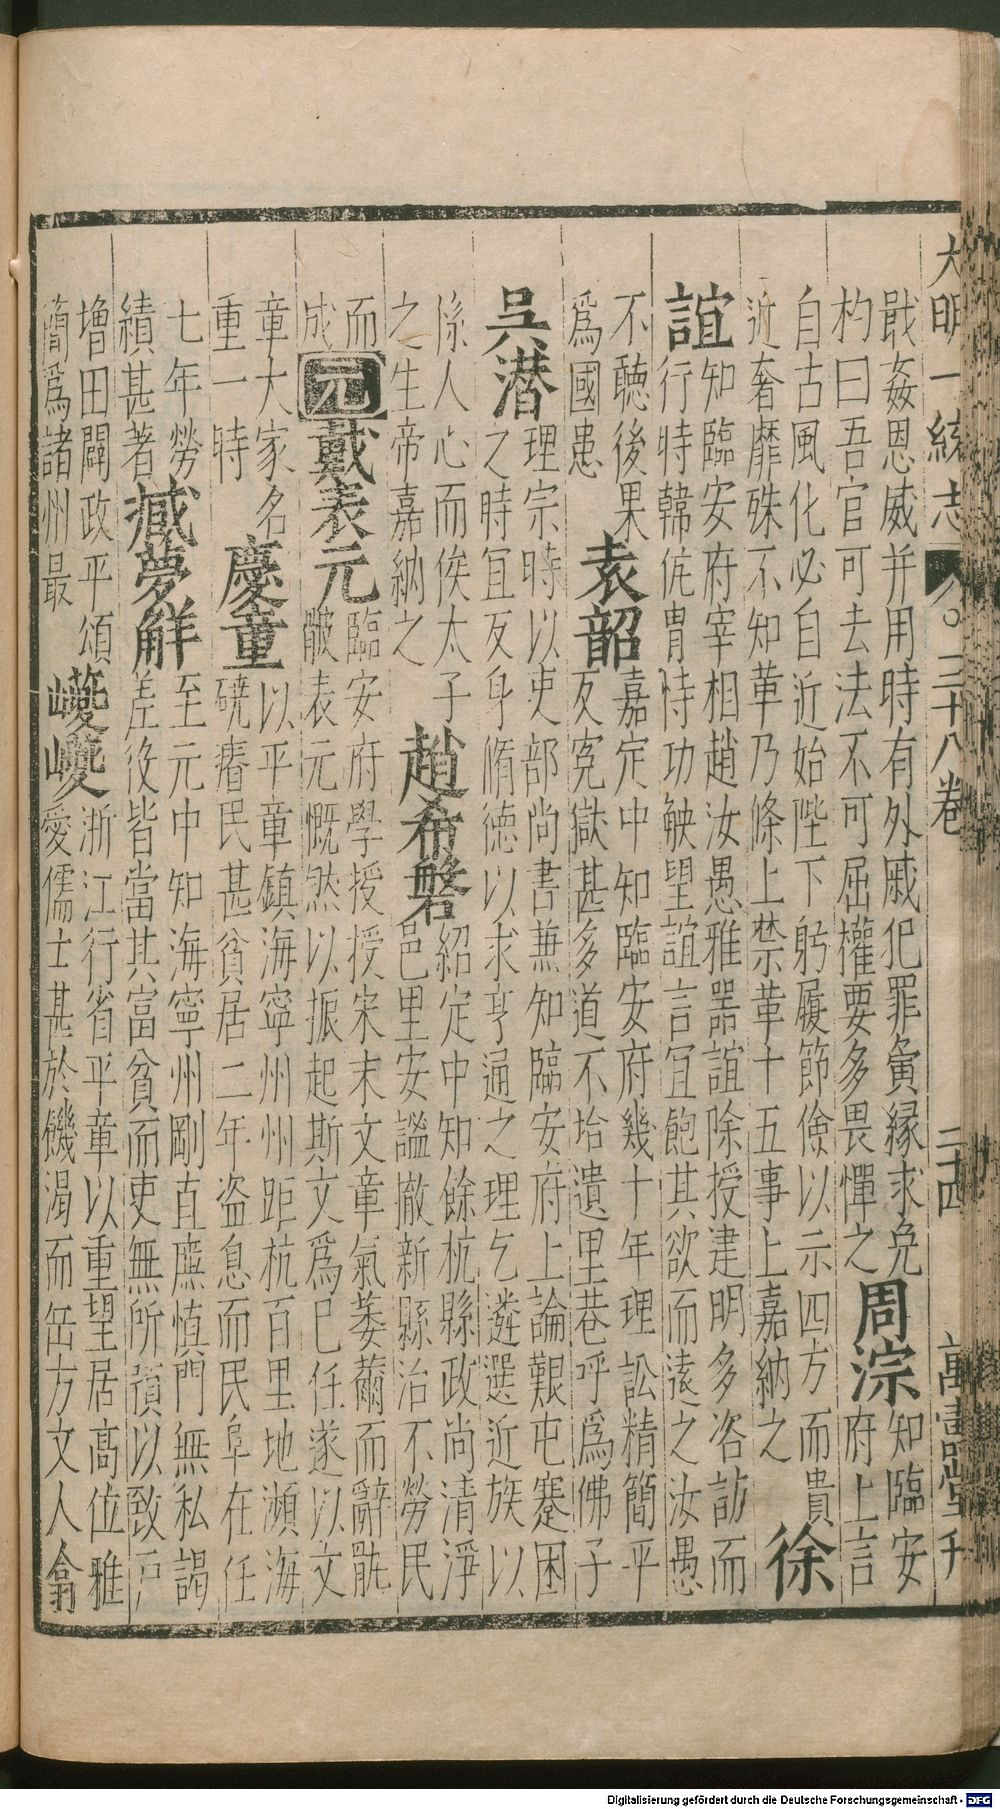 大明一統志 〇三十八卷 二十四 萬壽堂刊
戢姦恩威并用時有外戚犯罪夤縁求免
杓曰吾官可去法不可屈權要多畏憚之
周淙
知臨安
府上言
自古風化必自近始陛下躬履節儉以示四方而貴
近奢靡殊不知革乃條上禁革十五事上嘉納之
徐
誼
知臨安府宰相趙汝愚雅器誼除授建明多咨訪而
行時韓侂冑恃功觖望誼言宜飽其欲而逺之汝愚
不聽後果
爲國患
袁韶
嘉定中知臨安府幾十年理訟精簡平
反寃獄甚多道不拾遺里巷呼爲佛子
吳潜
理宗時以吏部尚書兼知臨安府上論艱屯蹇困
之時宜反身脩德以求亨通之理乞遴選近族以
係人心而俟太子
之生帝嘉納之
趙希磐
紹定中知餘杭縣政尚清淨
邑里安謐撤新縣治不勞民
而
成
元
戴表元
臨安府學授授宋末文章氣萎薾而辭骩
骳表元慨然以振起斯文爲己任遂以文
章大家名
重一時
慶童
以平章鎮海寧州州距杭百里地瀕海
磽瘠民甚貧居二年盗息而民阜在任
七年勞
績甚著
臧夢觧
至元中知海寧州剛直廉慎門無私謁
差役皆當其富貧而吏無所預以致戸
増田闢政平頌
簡爲諸州最
巙巙
浙江行省平章以重望居髙位雅
愛儒士甚於饑渴而缶方文人翕
Digitalisierung gefördert durch die Deutsche Forschungsgemeinschaft - DFG